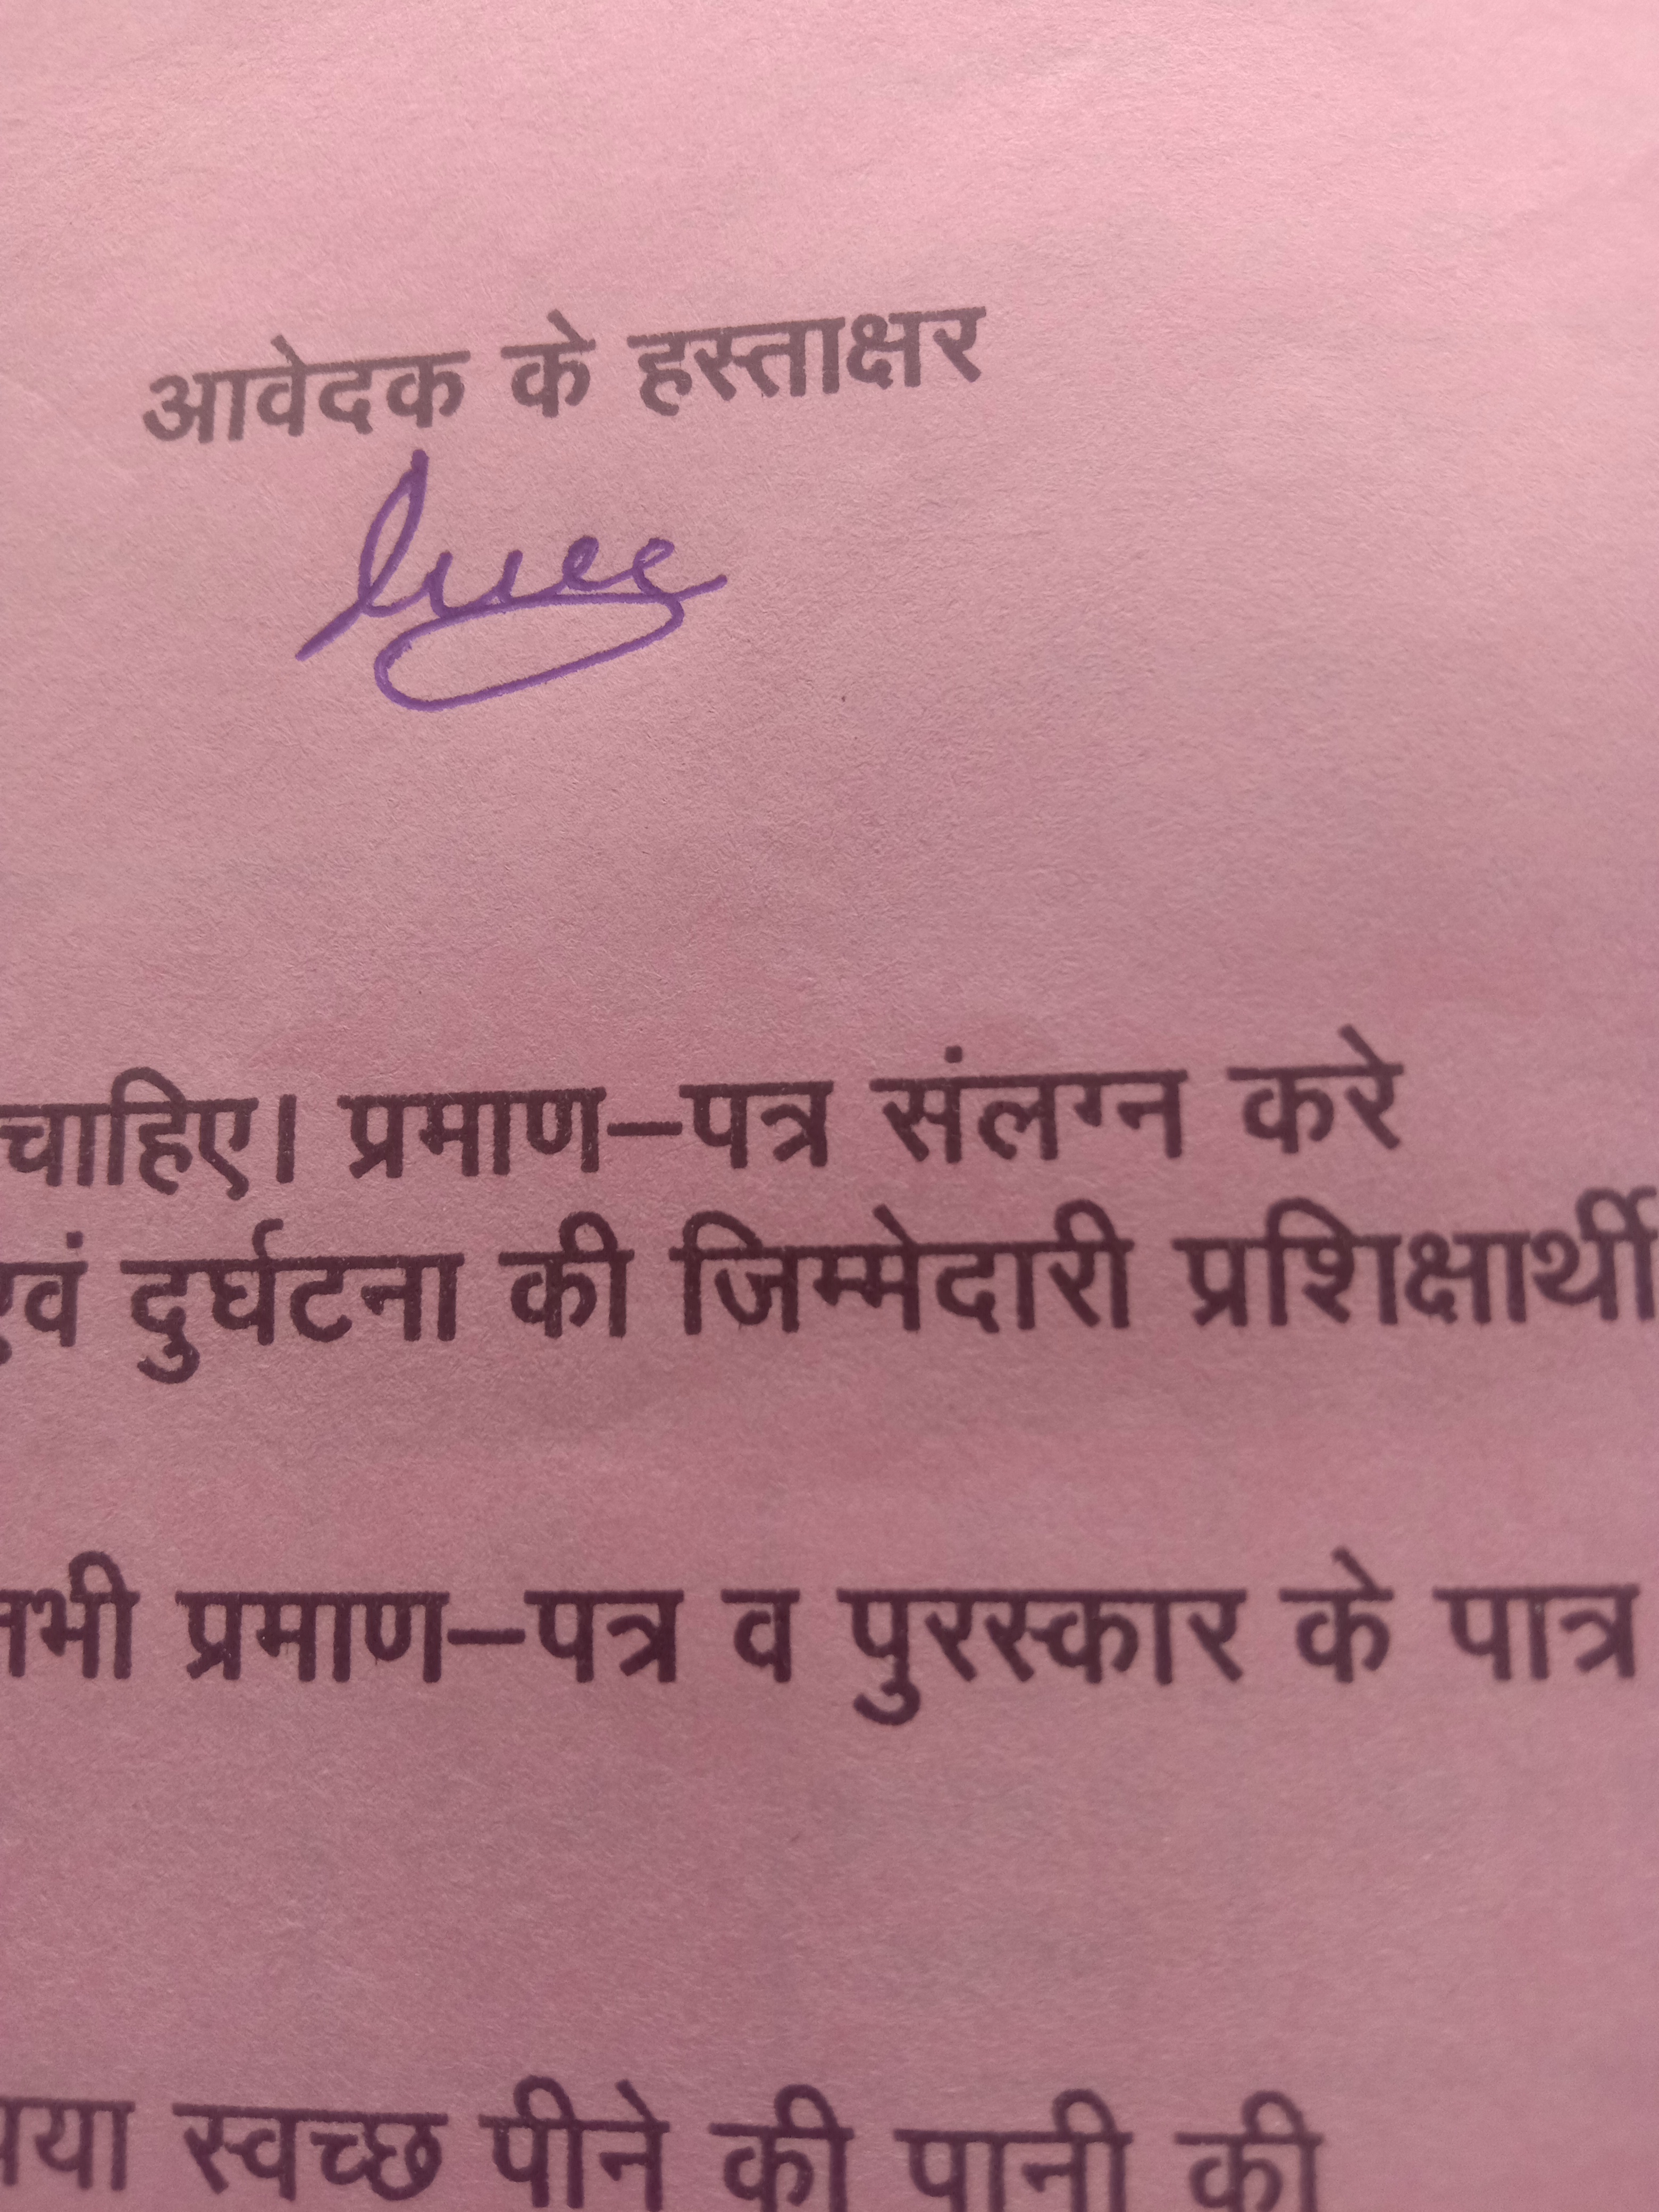 आवेदक के हस्ताक्षर
चाहिए। प्रमाण–पत्र संलग्न करे
एवं दुर्घटना की जिम्मेदारी प्रशिक्षार्थी
प्रमाण–पत्र व पुरस्कार के पात्र
स्वच्छ पीने की पानी की